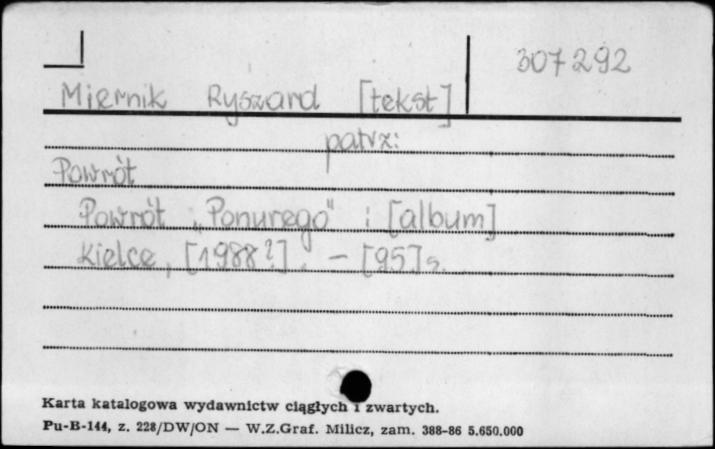 307292
Miernik Ryszard [tekst]
patrz:
Powrót
Powrót „Ponurego" : [album]
Kielce, [1988?]. - [95] s.
Karta katalogowa wydawnictw ciągłych i zwartych.
Pu-B-144, z. 228/DW/ON — W.Z.Graf. Milicz, zam. 388-86 5.650.000